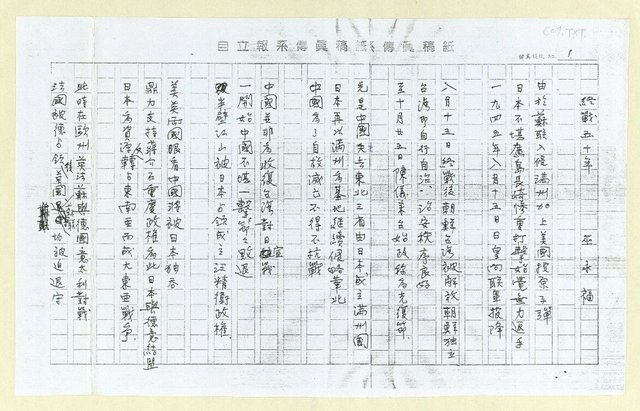 C07.TXT
自立報系傳真稿紙系傳真稿紙
1
終戰五十年 巫永福
由於蘇聯入侵滿州加上美國投原子彈
日本不堪廣島長崎慘重打擊始覺無力還手
一九四五年八月十五日日皇向聯軍投降
八月十五日終戰後朝鮮台灣被解放朝鮮独立
台灣即自行自治、治安秩序良好
至十月廿五日陳儀來台始改稱為光復節
先是中國失去東北三省由日本成立滿州國
日本再以滿州為基地繼續侵略華北
中國為了自救滅亡不得不抗戰
中國並非為收復台灣對日宣戰
一開始中國不堪一擊節節敗退
半壁江山被日本占領成立汪精衛政權
美英兩國眼看中國將被日本独吞
鼎力支持蔣介石重慶政權為此日本與德意結盟
日本為資源轉占東南亜而成大東亜戰爭
此時在歐州英法蘇與德國意大利對戰
法國被德占領英國退功被迫退守